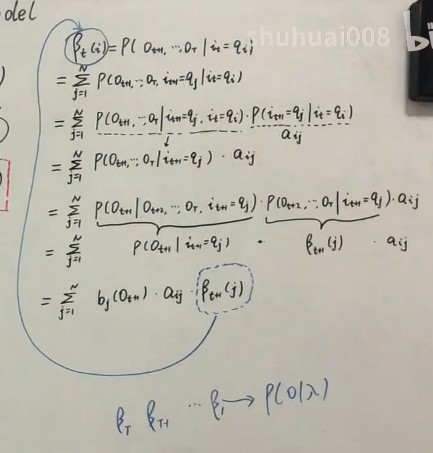 del
shuhuai008 bi
β_t(i) = P(o_{t+1}, ..., o_T | i_t = q_i)
= Σ_{j=1}^N P(o_{t+1}, ..., o_T, i_{t+1} = q_j | i_t = q_i)
= Σ_{j=1}^N P(o_{t+1}, ..., o_T | i_{t+1} = q_j, i_t = q_i) · P(i_{t+1} = q_j | i_t = q_i)
a_{ij}
= Σ_{j=1}^N P(o_{t+1}, ..., o_T | i_{t+1} = q_j) · a_{ij}
= Σ_{j=1}^N P(o_{t+1} | o_{t+2}, ..., o_T, i_{t+1} = q_j) · P(o_{t+2}, ..., o_T | i_{t+1} = q_j) · a_{ij}
= Σ_{j=1}^N P(o_{t+1} | i_{t+1} = q_j) · β_{t+1}(j) · a_{ij}
= Σ_{j=1}^N b_j(o_{t+1}) · a_{ij} · β_{t+1}(j)
β_T β_{T-1} ... β_1 → P(O|λ)